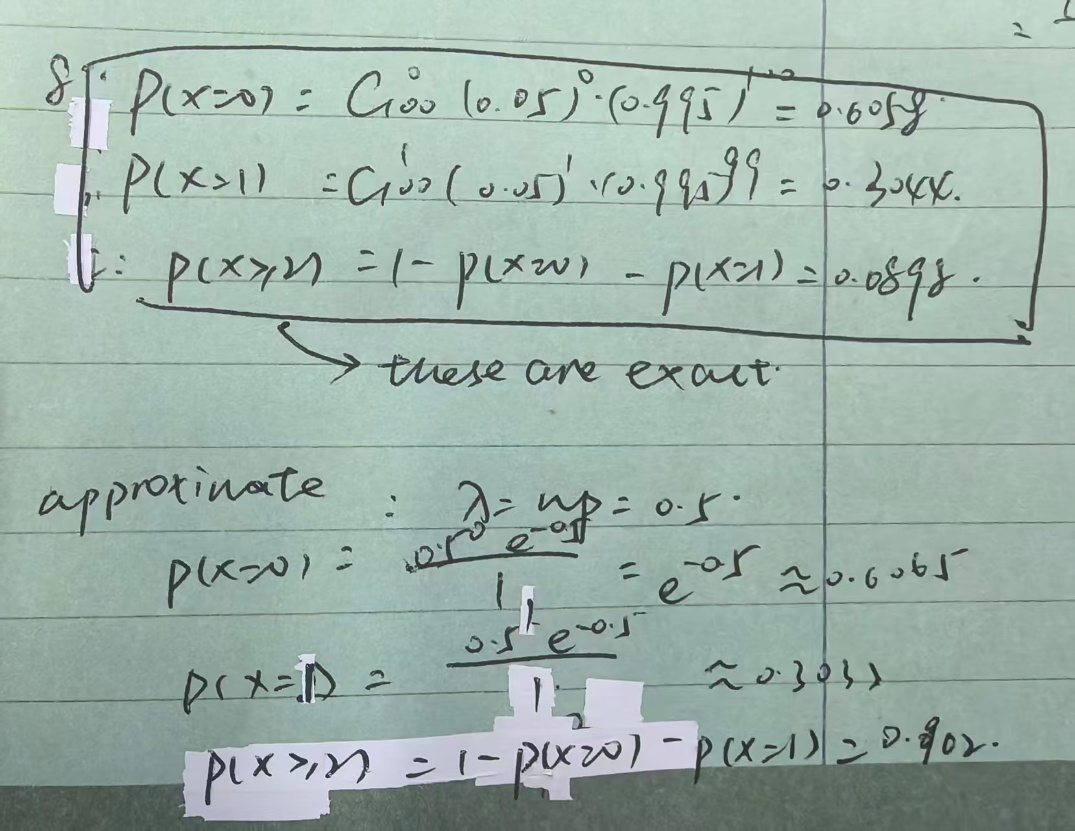 = 1
8. P(X=0) = C₁₀₀⁰ (0.05)⁰·(0.995)¹⁰⁰ = 0.6058
P(X=1) = C₁₀₀¹ (0.05)¹·(0.995)⁹⁹ = 0.3044.
: P(X≥2) = 1 - P(X=0) - P(X=1) = 0.0898.
→ these are exact.
approximate : λ = np = 0.5.
P(X=0) = 0.5⁰ e^-0.5 / 1 = e^-0.5 ≈ 0.6065
P(X=1) = 0.5¹ e^-0.5 / 1 ≈ 0.3033
P(X≥2) = 1 - P(X=0) - P(X=1) = 0.902.